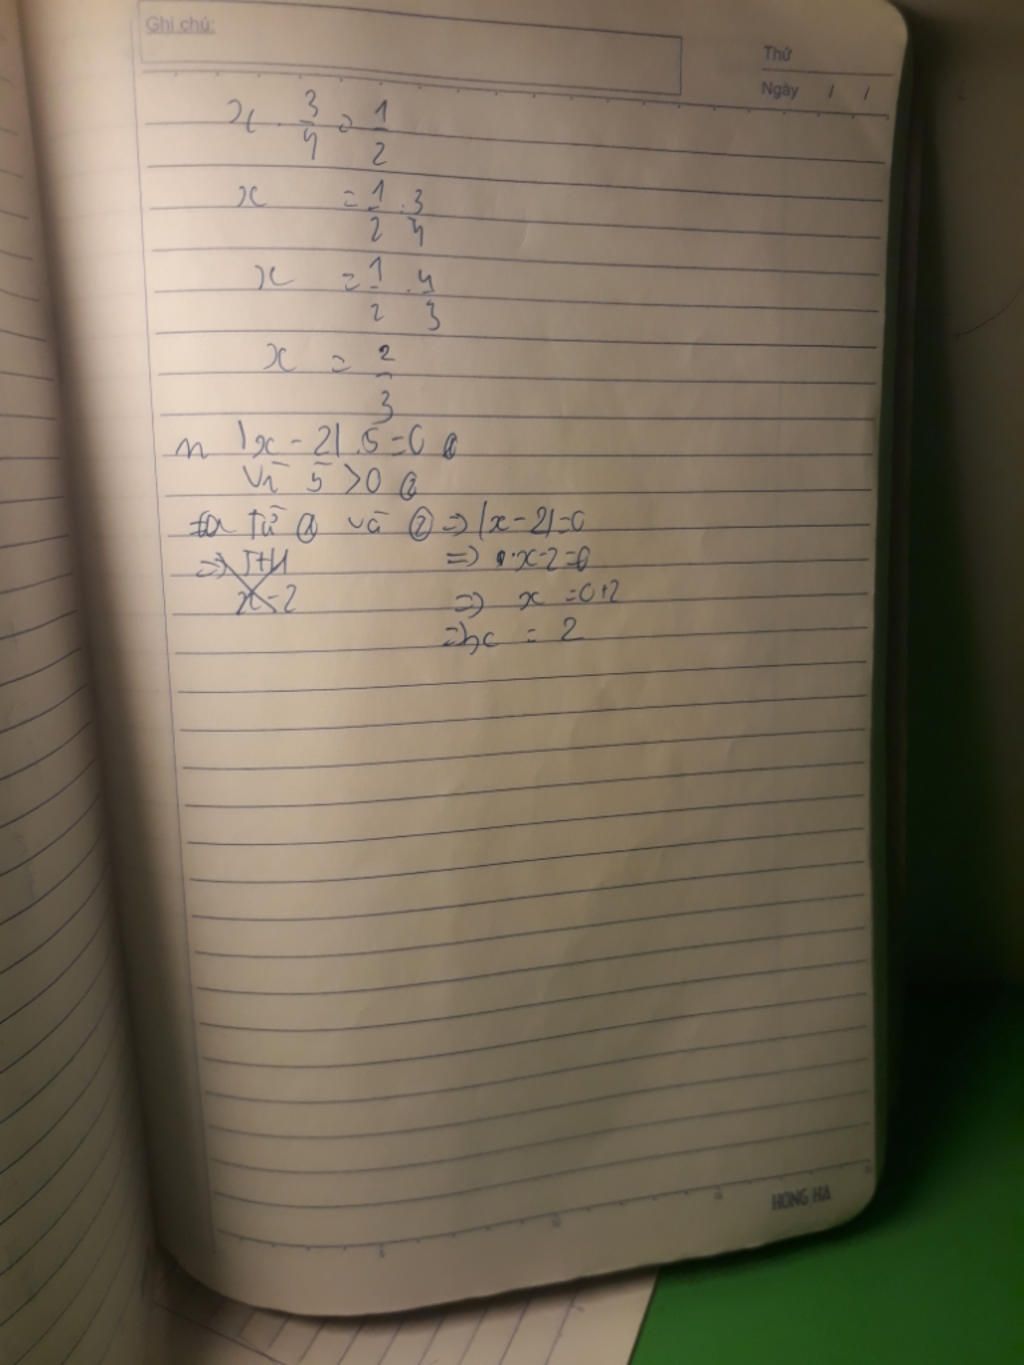 Ghi chú:
Thứ
Ngày / /
x . 3/4 = 1/2
x = 1/2 . 3/4
x = 1/2 . 4/3
x = 2/3
n |x - 2| .5 = 0 ①
Vì 5 > 0 ②
từ ① và ② => |x - 2| = 0
=> x - 2 = 0
x - 2 => x = 0 + 2
=> x = 2
HONG HA